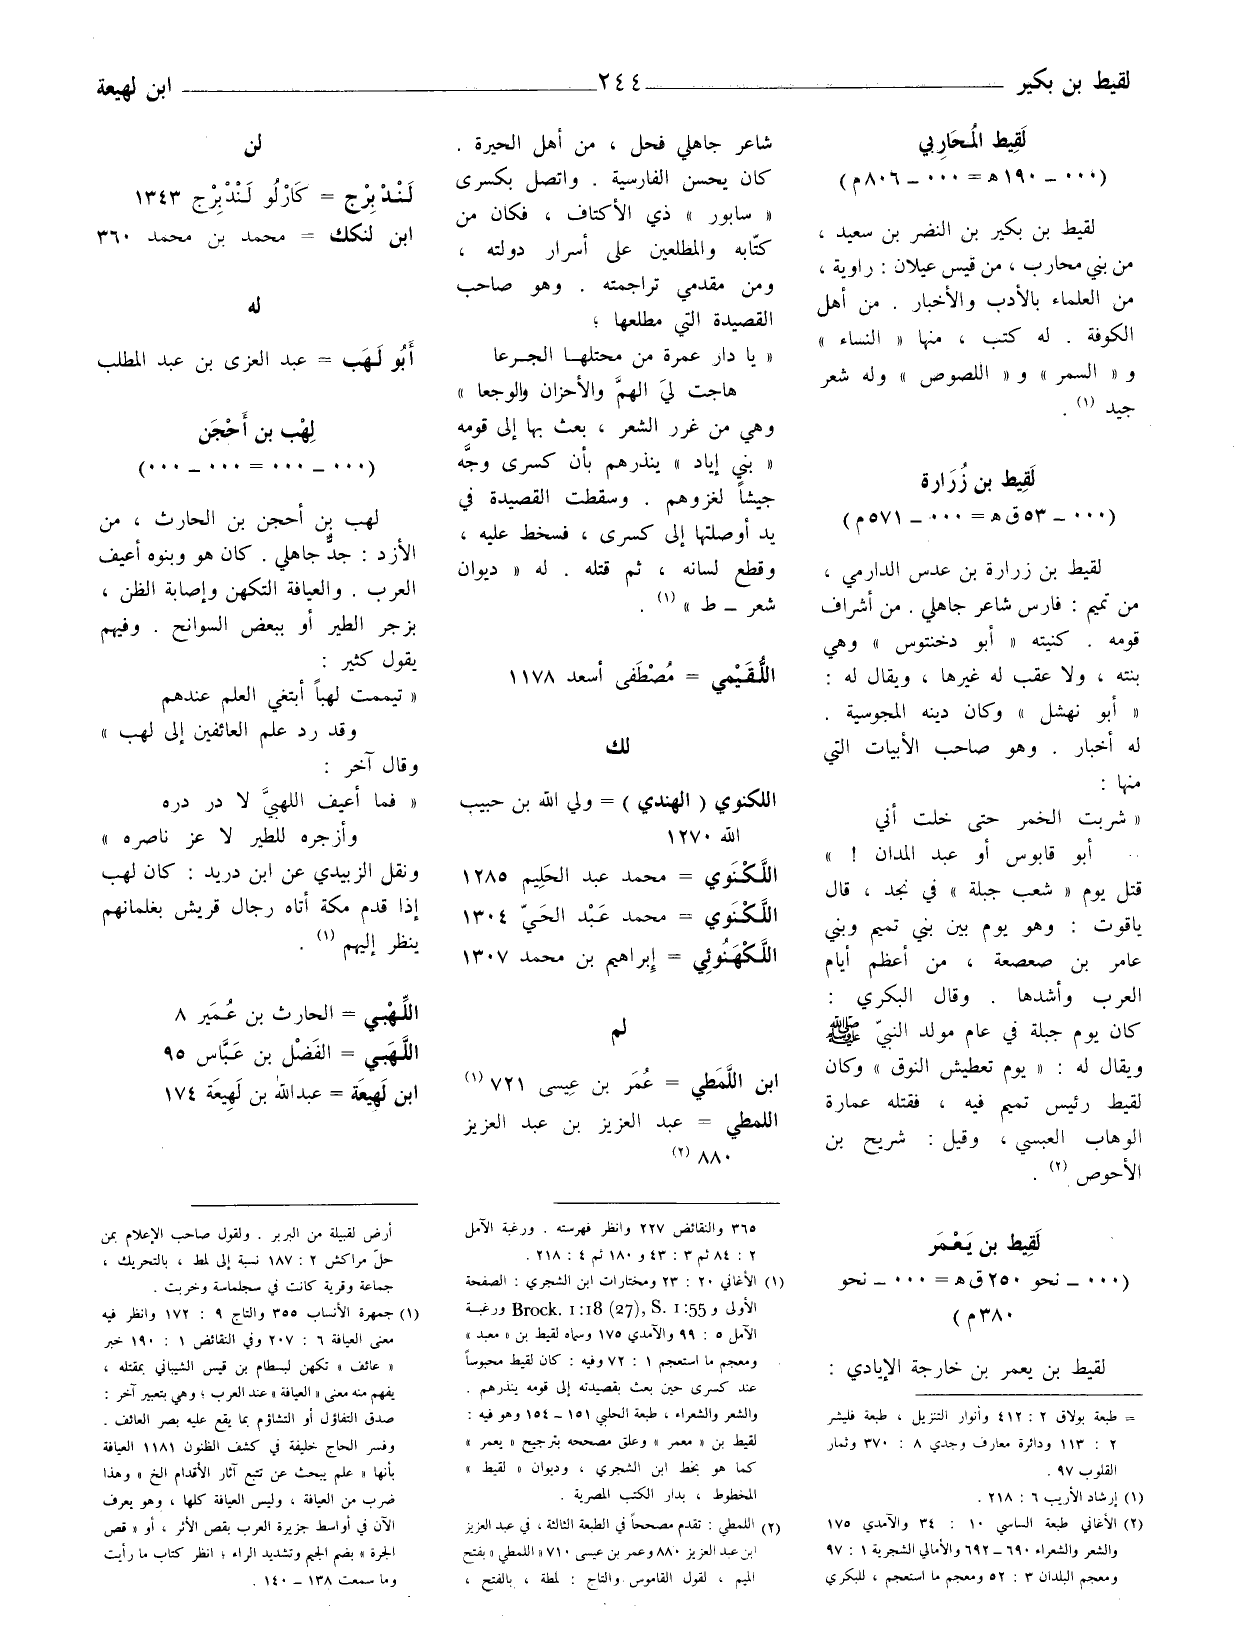 لقيط بن بكير ٢٤٤ ابن لهيعة
لَقِيط المُحَاربي
(٠٠٠ ــ ١٩٠ هـ = ٠٠٠ ــ ٨٠٦م)
لقيط بن بكير بن النضر بن سعيد ،
من بني محارب ، من قيس عيلان : راوية ،
من العلماء بالأدب والأخبار . من أهل
الكوفة . له كتب ، منها « النساء »
و « السمر » و « اللصوص » وله شعر
جيد (١) .
لَقِيط بن زُرَارة
(٠٠٠ ــ ٥٣ ق هـ = ٠٠٠ ــ ٥٧١م)
لقيط بن زرارة بن عدس الدارمي ،
من تميم : فارس شاعر جاهلي . من أشراف
قومه . كنيته « أبو دختنوس » وهي
بنته ، ولا عقب له غيرها ، ويقال له :
« أبو نهشل » وكان دينه المجوسية .
له أخبار . وهو صاحب الأبيات التي
منها :
« شربت الخمر حتى خلت أني
أبو قابوس أو عبد المدان ! »
قتل يوم « شعب جبلة » في نجد ، قال
ياقوت : وهو يوم بين بني تميم وبني
عامر بن صعصعة ، من أعظم أيام
العرب وأشدها . وقال البكري :
كان يوم جبلة في عام مولد النبيّ ﷺ
ويقال له : « يوم تعطيش النوق » وكان
لقيط رئيس تميم فيه ، فقتله عمارة
الوهاب العبسي ، وقيل : شريح بن
الأحوص (٢) .
لَقِيط بن يَعْمَر
(٠٠٠ ــ نحو ٢٥٠ ق هـ = ٠٠٠ ــ نحو
٣٨٠م)
لقيط بن يعمر بن خارجة الإيادي :
= طبعة بولاق ٢ : ٤١٢ وأنوار التنزيل ، طبعة فليشر
٢ : ١١٣ ودائرة معارف وجدي ٨ : ٣٧٠ وثمار
القلوب ٩٧ .
(١) إرشاد الأريب ٦ : ٢١٨ .
(٢) الأغاني طبعة الساسي ١٠ : ٣٤ والآمدي ١٧٥
والشعر والشعراء ٦٩٠ــ٦٩٢ والأمالي الشجرية ١ : ٩٧
ومعجم البلدان ٣ : ٥٢ ومعجم ما استعجم ، للبكري
شاعر جاهلي فحل ، من أهل الحيرة .
كان يحسن الفارسية . واتصل بكسرى
« سابور » ذي الأكتاف ، فكان من
كتّابه والمطلعين على أسرار دولته ،
ومن مقدمي تراجمته . وهو صاحب
القصيدة التي مطلعها ؛
« يا دار عمرة من محتلهـا الجـرعا
هاجت ليَ الهمَّ والأحزان والوجعا »
وهي من غرر الشعر ، بعث بها إلى قومه
« بني إياد » ينذرهم بأن كسرى وجَّه
جيشاً لغزوهم . وسقطت القصيدة في
يد أوصلتها إلى كسرى ، فسخط عليه ،
وقطع لسانه ، ثم قتله . له « ديوان
شعر ــ ط » (١) .
اللُّقَيْمي = مُصْطَفى أسعد ١١٧٨
لك
اللكنوي ( الهندي ) = ولي الله بن حبيب
الله ١٢٧٠
اللَّكْنَوي = محمد عبد الحَلِيم ١٢٨٥
اللَّكْنَوي = محمد عَبْد الحَيّ ١٣٠٤
اللَّكْهَنُوئِي = إبراهيم بن محمد ١٣٠٧
لم
ابن اللَّمَطي = عُمَر بن عِيسى ٧٢١ (١)
اللمطي = عبد العزيز بن عبد العزيز
٨٨٠ (٢)
٣٦٥ والنقائض ٢٢٧ وانظر فهرسته . ورغبة الآمل
٢ : ٨٤ ثم ٣ : ٤٣ و ١٨٠ ثم ٤ : ٢١٨ .
(١) الأغاني ٢٠ : ٢٣ ومختارات ابن الشجري : الصفحة
الأولى و Brock. 1:18 (27), S. 1:55 ورغبـة
الآمل ٥ : ٩٩ والآمدي ١٧٥ وسماه لقيط بن « معبد »
ومعجم ما استعجم ١ : ٧٢ وفيه : كان لقيط محبوساً
عند كسرى حين بعث بقصيدته إلى قومه ينذرهم .
والشعر والشعراء ، طبعة الحلبي ١٥١ ــ ١٥٤ وهو فيه :
لقيط بن « معمر » وعلق مصححه بترجيح « يعمر »
كما هو بخط ابن الشجري ، وديوان « لقيط »
المخطوط ، بدار الكتب المصرية .
(٢) اللمطي : تقدم مصححاً في الطبعة الثالثة ، في عبد العزيز
ابن عبد العزيز ٨٨٠ وعمر بن عيسى ٧١٠ « اللمطي » بفتح
الميم ، لقول القاموس والتاج : لمطة ، بالفتح ،
لن
لَنْدْبِرْج = كَارْلُو لَنْدْبِرْج ١٣٤٣
ابن لنكك = محمد بن محمد ٣٦٠
له
أَبُو لَهَب = عبد العزى بن عبد المطلب
لِهْب بن أَحْجَن
(٠٠٠ ــ ٠٠٠ = ٠٠٠ ــ ٠٠٠)
لهب بن أحجن بن الحارث ، من
الأزد : جدٌّ جاهلي . كان هو وبنوه أعيف
العرب . والعيافة التكهن وإصابة الظن ،
بزجر الطير أو ببعض السوانح . وفيهم
يقول كثير :
« تيممت لهباً أبتغي العلم عندهم
وقد رد علم العائفين إلى لهب »
وقال آخر :
« فما أعيف اللهبيَّ لا در دره
وأزجره للطير لا عز ناصره »
ونقل الزبيدي عن ابن دريد : كان لهب
إذا قدم مكة أتاه رجال قريش بغلمانهم
ينظر إليهم (١) .
اللِّهْبي = الحارث بن عُـمَير ٨
اللَّهَبي = الفَضْل بن عَبَّاس ٩٥
ابن لَهِيعَة = عبدالله بن لَهِيعَة ١٧٤
أرض لقبيلة من البربر . ولقول صاحب الإعلام بمن
حلّ مراكش ٢ : ١٨٧ نسبة إلى لمط ، بالتحريك ،
جماعة وقرية كانت في سجلماسة وخربت .
(١) جمهرة الأنساب ٣٥٥ والتاج ٩ : ١٧٢ وانظر فيه
معنى العيافة ٦ : ٢٠٧ وفي النقائض ١ : ١٩٠ خبر
« عائف » تكهن لبسطام بن قيس الشيباني بمقتله ،
يفهم منه معنى « العيافة » عند العرب ؛ وهي بتعبير آخر :
صدق التفاؤل أو التشاؤم بما يقع عليه بصر العائف .
وفسر الحاج خليفة في كشف الظنون ١١٨١ العيافة
بأنها « علم يبحث عن تتبع آثار الأقدام الخ » وهذا
ضرب من العيافة ، وليس العيافة كلها ، وهو يعرف
الآن في أواسط جزيرة العرب بقص الأثر ، أو « قص
الجرة » بضم الجيم وتشديد الراء ؛ انظر كتاب ما رأيت
وما سمعت ١٣٨ ــ ١٤٠ .